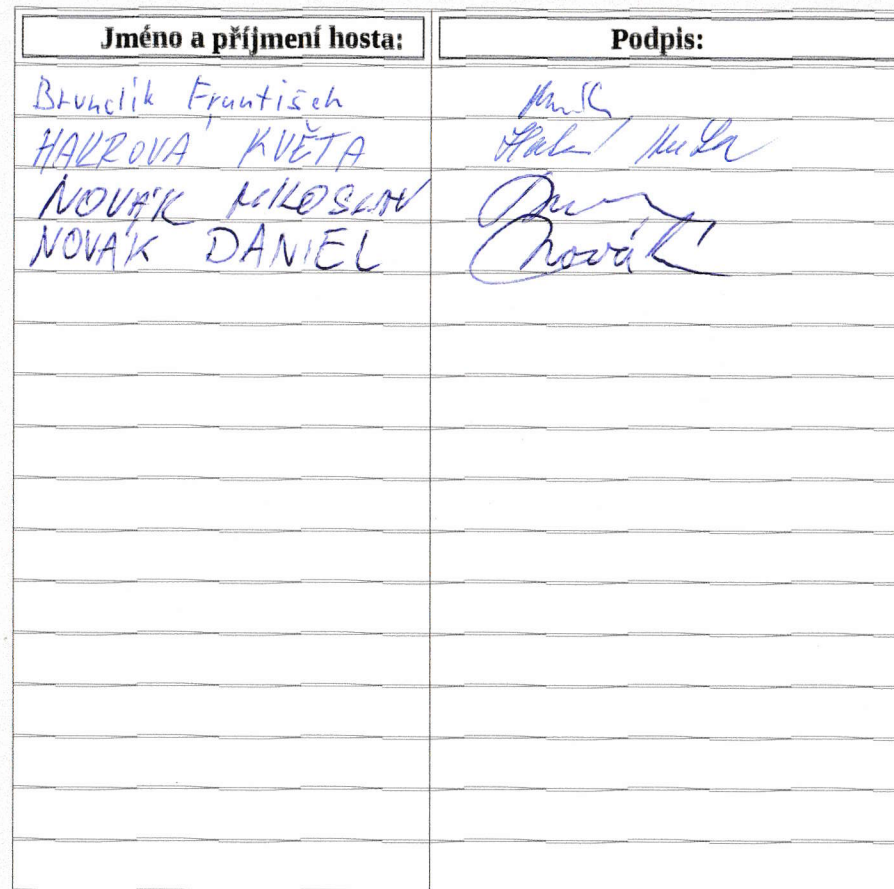 Jméno a příjmení hosta: Podpis:
Brunclík František
HAKROVÁ KVĚTA
NOVÁK MILOSLAV
NOVÁK DANIEL Novák